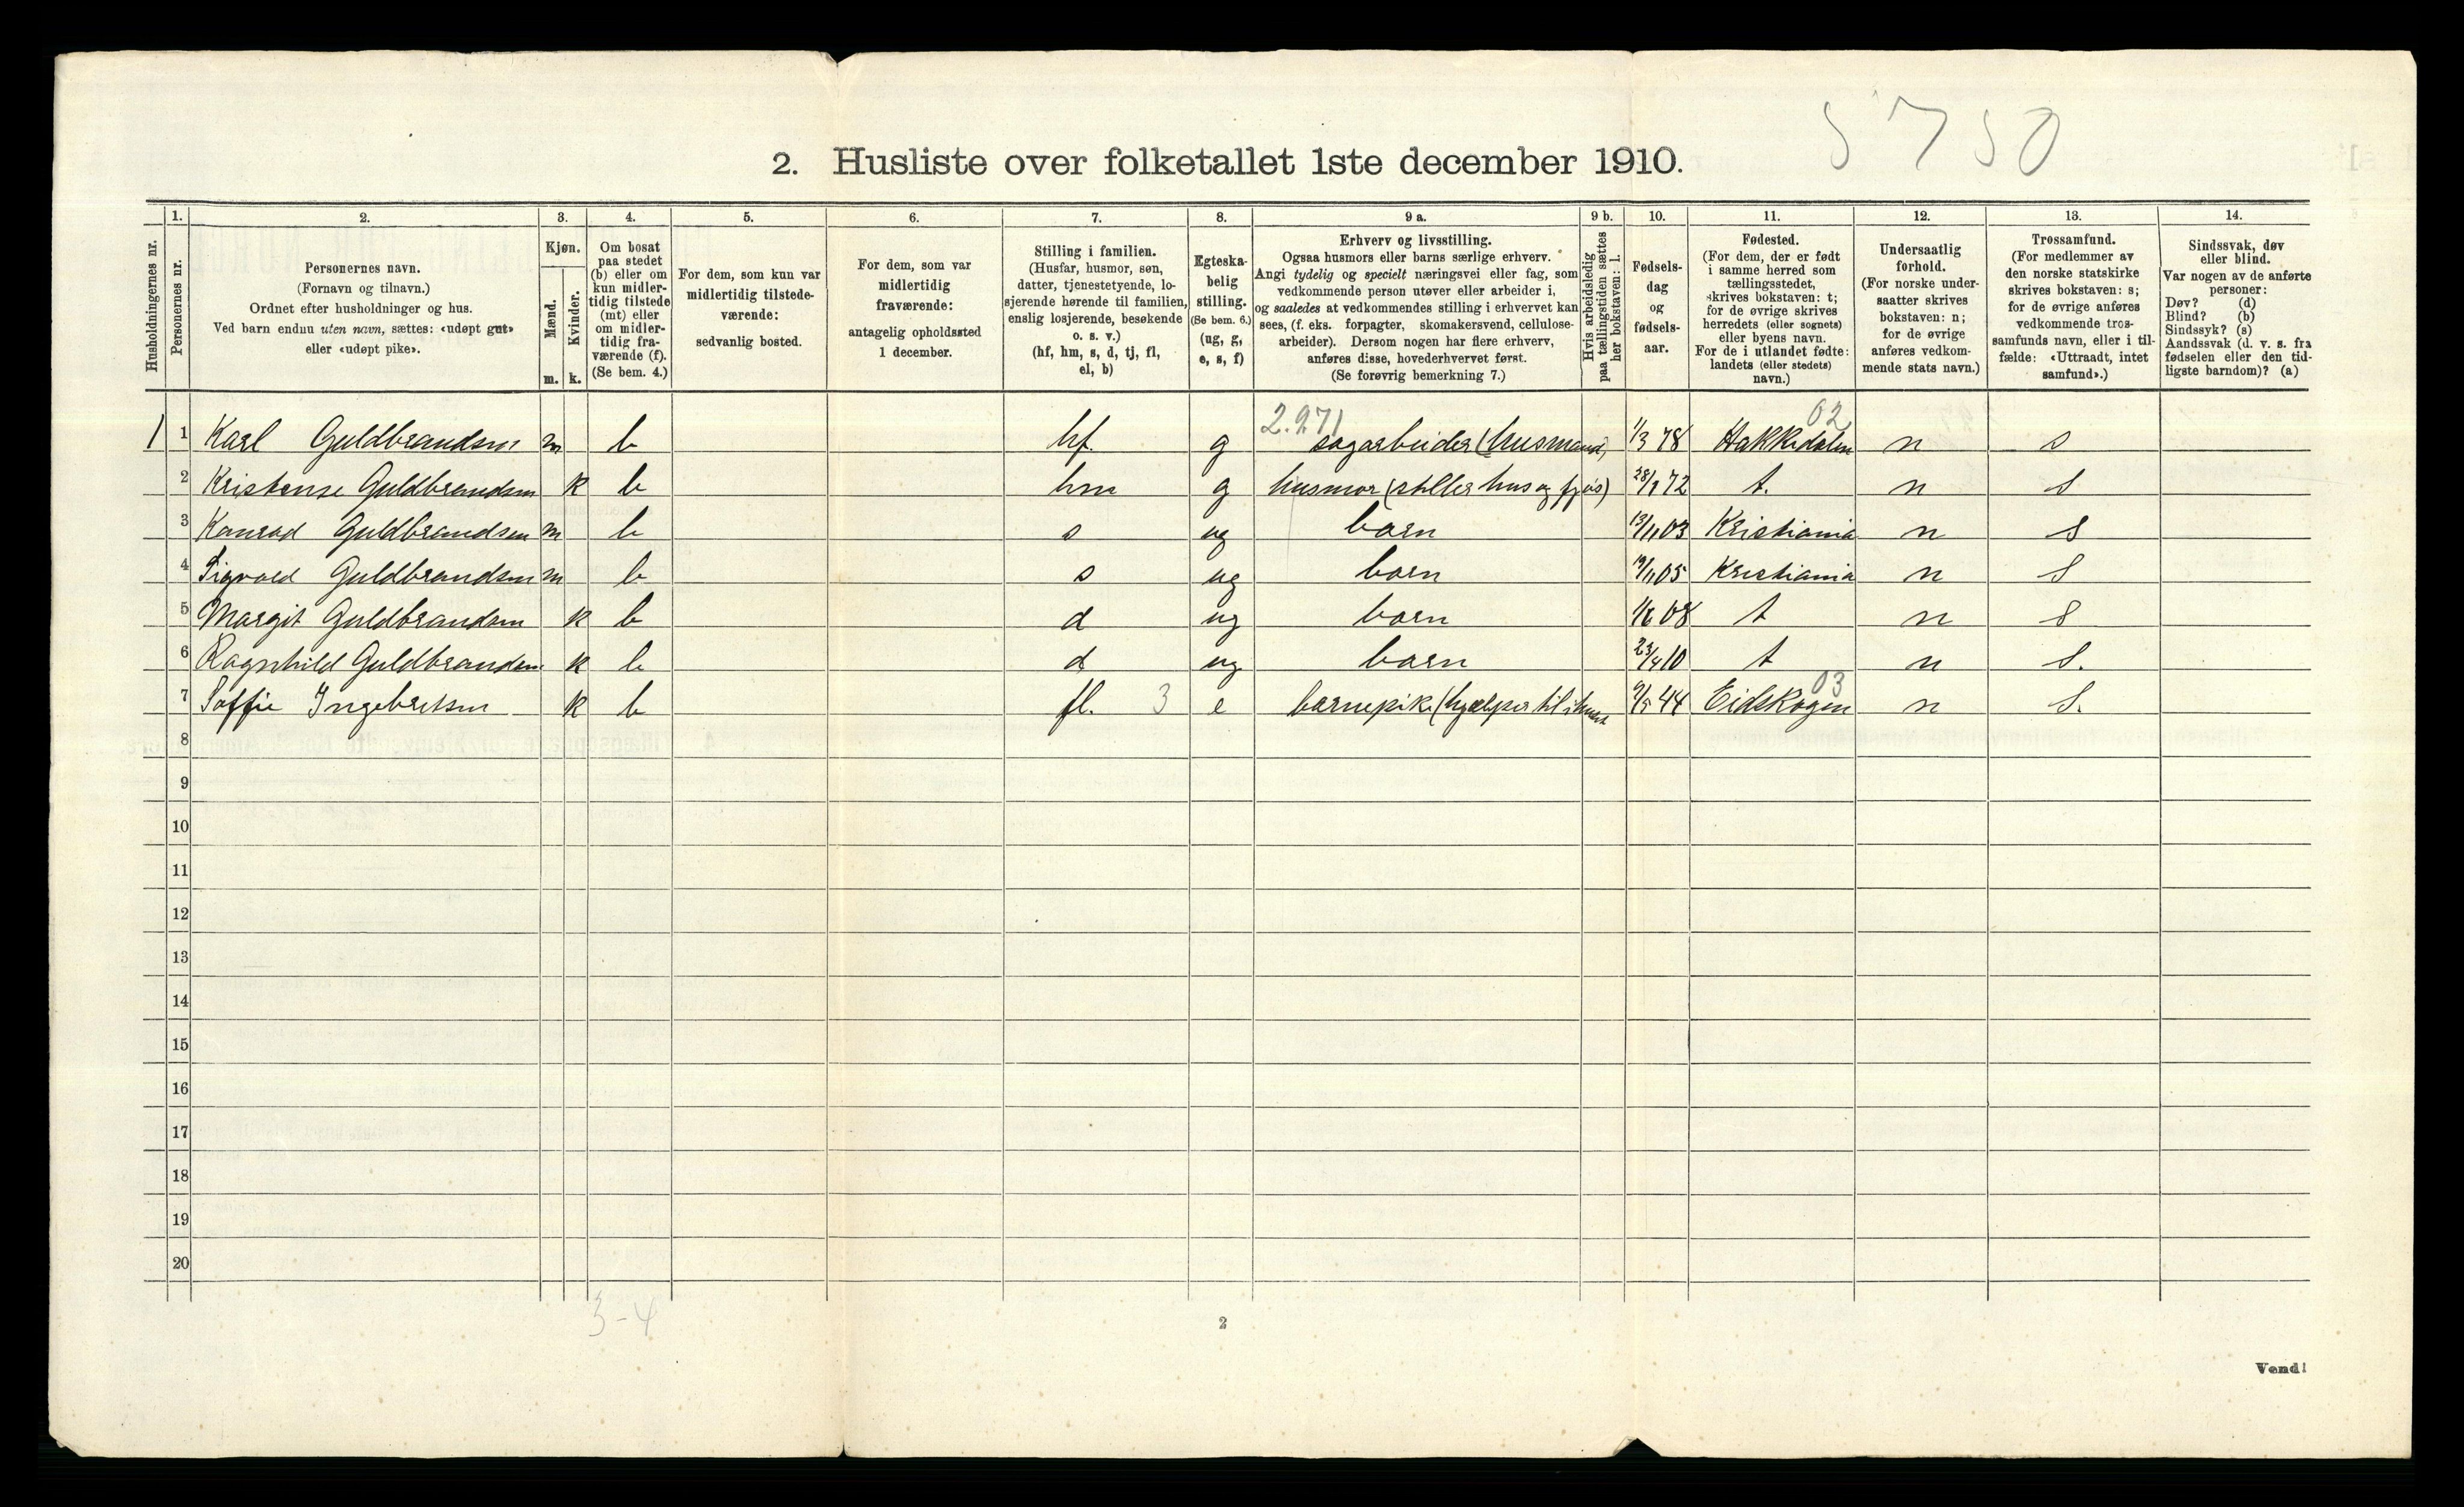 5750
2. Husliste over folketallet 1ste december 1910.
Husholdningernes nr.
1.
Personernes nr.
2.
Personernes navn.
(Fornavn og tilnavn.)
Ordnet efter husholdninger og hus.
Ved barn endnu uten navn, sættes: «udøpt gut»
eller «udøpt pike».
3.
Kjøn.
Mænd.
m.
Kvinder.
k.
4.
Om bosat
paa stedet
(b) eller om
kun midler-
tidig tilstede
(mt) eller
om midler-
tidig fra-
værende (f).
(Se bem. 4.)
5.
For dem, som kun var
midlertidig tilstede-
værende:
sedvanlig bosted.
6.
For dem, som var
midlertidig
fraværende:
antagelig opholdssted
1 december.
7.
Stilling i familien.
(Husfar, husmor, søn,
datter, tjenestetyende, lo-
sjerende hørende til familien,
enslig losjerende, besøkende
o. s. v.)
(hf, hm, s, d, tj, fl,
el, b)
8.
Egteska-
belig
stilling.
(Se bem. 6.)
(ug, g,
e, s, f)
9 a.
Erhverv og livsstilling.
Ogsaa husmors eller barns særlige erhverv.
Angi tydelig og specielt næringsvei eller fag, som
vedkommende person utøver eller arbeider i,
og saaledes at vedkommendes stilling i erhvervet kan
sees, (f. eks. forpagter, skomakersvend, cellulose-
arbeider). Dersom nogen har flere erhverv,
anføres disse, hovederhvervet først.
(Se forøvrig bemerkning 7.)
9 b.
Hvis arbeidsledig
paa tællingstiden sættes
her bokstaven: l.
10.
Fødsels-
dag
og
fødsels-
aar.
11.
Fødested.
(For dem, der er født
i samme herred som
tællingsstedet,
skrives bokstaven: t;
for de øvrige skrives
herredets (eller sognets)
eller byens navn.
For de i utlandet fødte:
landets (eller stedets)
navn.)
12.
Undersaatlig
forhold.
(For norske under-
saatter skrives
bokstaven: n;
for de øvrige
anføres vedkom-
mende stats navn.)
13.
Trossamfund.
(For medlemmer av
den norske statskirke
skrives bokstaven: s;
for de øvrige anføres
vedkommende tros-
samfunds navn, eller i til-
fælde: «Uttraadt, intet
samfund».)
14.
Sindssvak, døv
eller blind.
Var nogen av de anførte
personer:
Døv? (d)
Blind? (b)
Sindssyk? (s)
Aandssvak (d. v. s. fra
fødselen eller den tid-
ligste barndom)? (a)
2.971 02
1 1 Karl Guldbrandsen m b hf. g sagarbeider (husmand) 1/3 78 Hakkedalen n s
2 Kristense Guldbrandsen k b hm g husmor (steller hus og fjøs) 28/1 72 t. n s
3 Konrad Guldbrandsen m b s ug barn 13/11 03 Kristiania n s
4 Sigvald Guldbrandsen m b s ug barn 19/11 05 Kristiania n s
5 Margit Guldbrandsen k b d ug barn 1/6 08 t n s
6 Ragnhild Guldbrandsen k b d ug barn 23/4 10 t n s.
03
7 Soffie Ingebretsen k b fl. 3 e barnepike (hjælper til i huset 9/5 44 Eidskogen n s.
8
9
10
11
12
13
14
15
16
17
18
19
20
3-4
2
Vend!